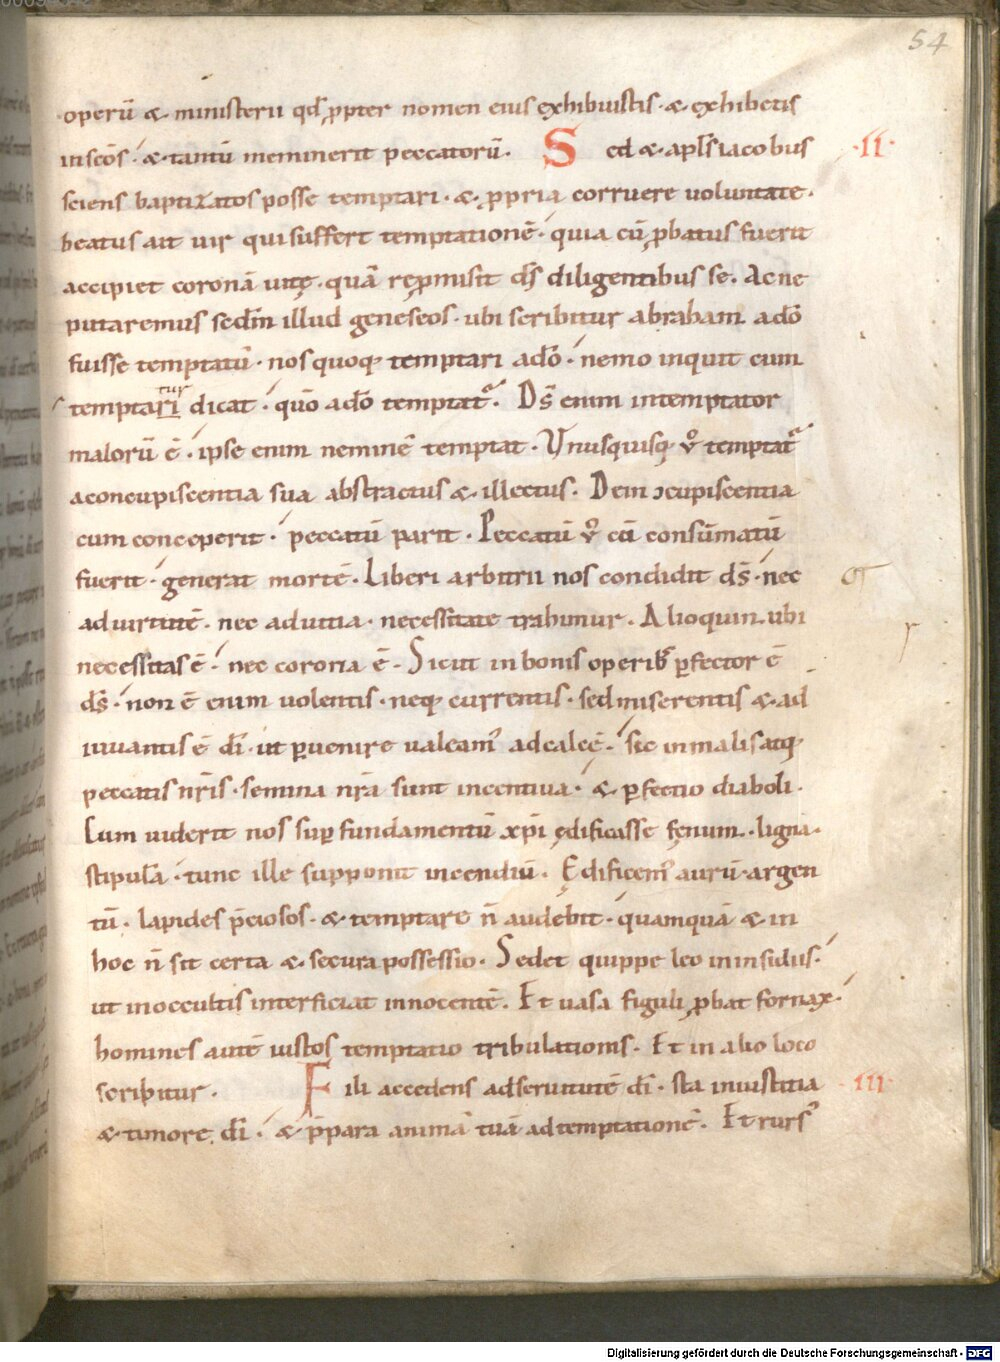 54
operū & ministerii qd ꝓpter nomen eius exhibuistis · & exhibetis
in scōs · & tantū meminerit peccatorū . Sed & apl̄s iacobus · II ·
sciens baptizatos posse temptari · & ꝓpria corruere uoluntate ·
beatus ait uir qui suffert temptationē · quia cū ꝓbatus fuerit
accipiet coronā uitę · quā reꝓmisit d̄s diligentibus se . Ac ne
putaremus sedm̄ illud geneseos · ubi scribitur abraham a dō
fuisse temptatū · nos quoq; temptari a dō · nemo inquit cum
temptari tur dicat · quō a dō temptat᷑ . D̄s enim intemptator
malorū ē · ipse enim neminē temptat · Vnusquisq; v̊ temptat᷑
a concupiscentia sua abstractus & illectus . Dein ↄcupiscentia
cum conceperit · peccatū parit . Peccatū v̊ cū consūmatū
fuerit · generat mortē . Liberi arbitrii nos condidit d̄s · nec
ad uirtutē · nec ad uitia · necessitate trahimur . Alioquin ubi
necessitas ē · nec corona ē . Sicut in bonis operib; ꝑfector ē
d̄s · non ē enim uolentis · neq; currentis · sed miserentis & ad
iuuantis ē dī · ut ꝑuenire ualeam᷒ ad calcē · sic in malis atq;
peccatis nr̄is · semina nr̄a sunt incentiua · & ꝑfectio diaboli .
Cum uiderit nos sup̱ fundamentū xp̄i ędificasse fęnum · ligna ·
stipulā · tunc ille supponit incendiū . Ędificem᷒ aurū · argen
tū · lapides p̄ciosos · & temptare n̄ audebit · quamquā & in
hoc n̄ sit certa & secura possessio . Sedet quippe leo in insidiis ·
ut in occultis interficiat innocentē . Et uasa figuli ꝓbat fornax ·
homines autē iustos temptatio tribulationis . Et in alio loco
scribitur . Fili accedens ad seruitutē dī · sta in iustitia · III ·
& timore dī · & p̄para animā tuā ad temptationē . Et rurs᷒
Digitalisierung gefördert durch die Deutsche Forschungsgemeinschaft - DFG